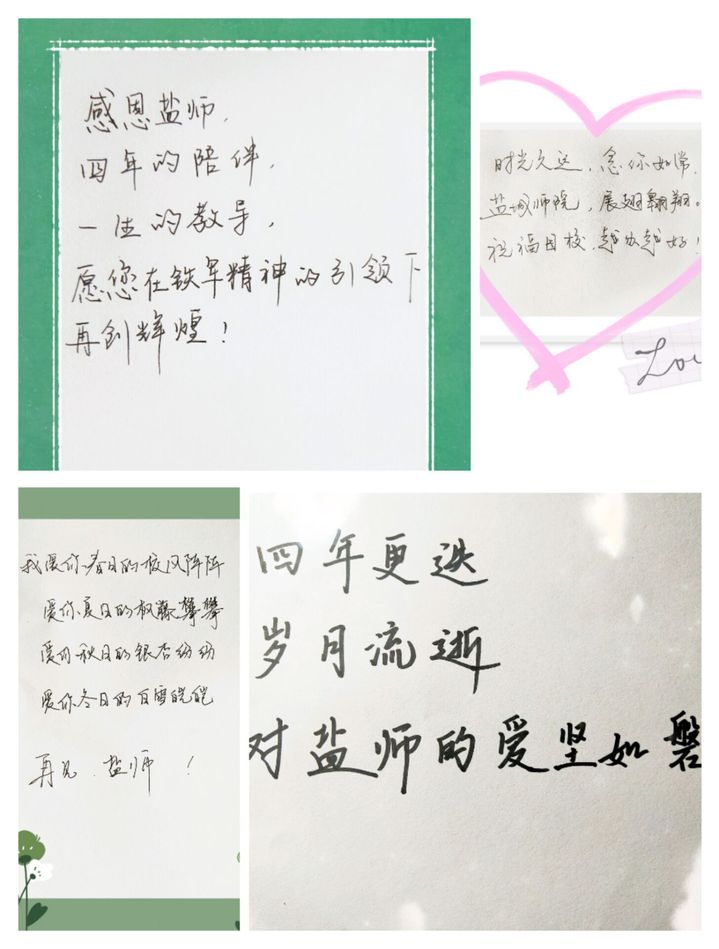 感恩盐师，
四年的陪伴，
一生的教导，
愿您在铁军精神的引领下
再创辉煌！
时光久远，念你如常，
盐城师院，展翅翱翔。
祝福母校，越办越好！
Lov
我爱你春日的校风阵阵
爱你夏日的枫藤攀攀
爱你秋日的银杏纷纷
爱你冬日的白雪皑皑
再见，盐师！
四年更迭
岁月流逝
对盐师的爱坚如磐